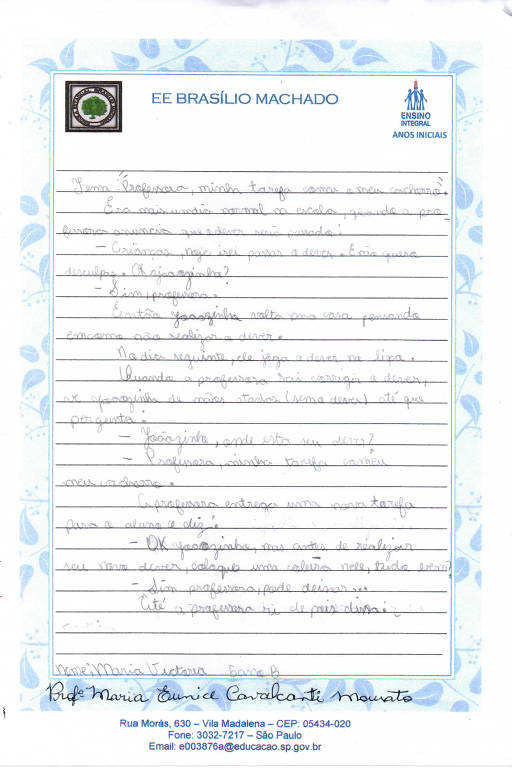 EE BRASÍLIO MACHADO
ENSINO
INTEGRAL
ANOS INICIAIS
Tema "Professora, minha tarefa comeu o meu cachorro".
Era mais um dia normal na escola, quando a pro-
fessora anuncia que o dever será passado:
- Crianças, hoje irei passar o dever. E não quero
desculpas. OK Joãozinho?
- Sim, professora.
Então Joãozinho volta para casa pensando
em como não realizar o dever.
No dia seguinte, ele joga o dever no lixo.
Quando a professora vai corrigir o dever,
vê Joãozinho de mãos atadas (sem o dever) até que
pergunta:
- Joãozinho, onde está seu dever?
- Professora, minha tarefa comeu
meu cachorro.
A professora entrega uma nova tarefa
para o aluno e diz:
- OK Joãozinho, mas antes de realizar
seu novo dever, coloque uma coleira nele, tudo bem?
- Sim professora, pode deixar...
Até a professora ri depois disso!
Nome: Maria Victoria 5º ano B
Profª Maria Eunice Cavalcanti Mourato
Rua Morás, 630 – Vila Madalena – CEP: 05434-020
Fone: 3032-7217 – São Paulo
Email: e003876a@educacao.sp.gov.br